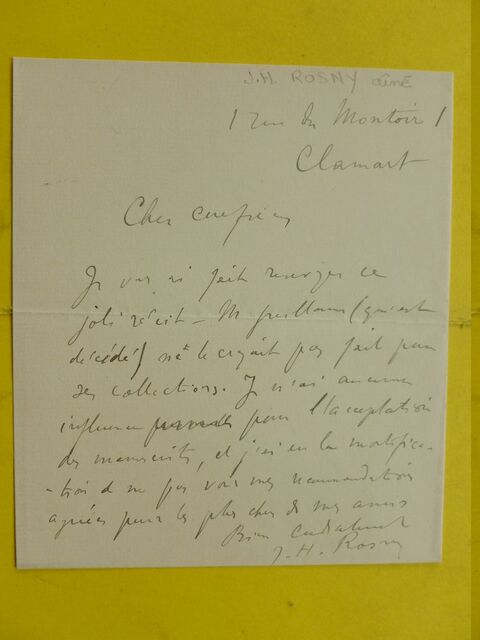 J.H. ROSNY aîné
1 rue du Montoir 1
Clamart
Cher confrère
Je vous ai fait renvoyer ce
joli récit – M Guillaume (qui est
décédé) ne le croyait pas fait pour
ses collections. Je n'ai aucune
influence pour l'acceptation
des manuscrits, et j'ai eu la mortifica-
-tion de ne pas voir mes recommandations
agréées pour les plus chers de mes amis
Bien cordialement
J.-H. Rosny